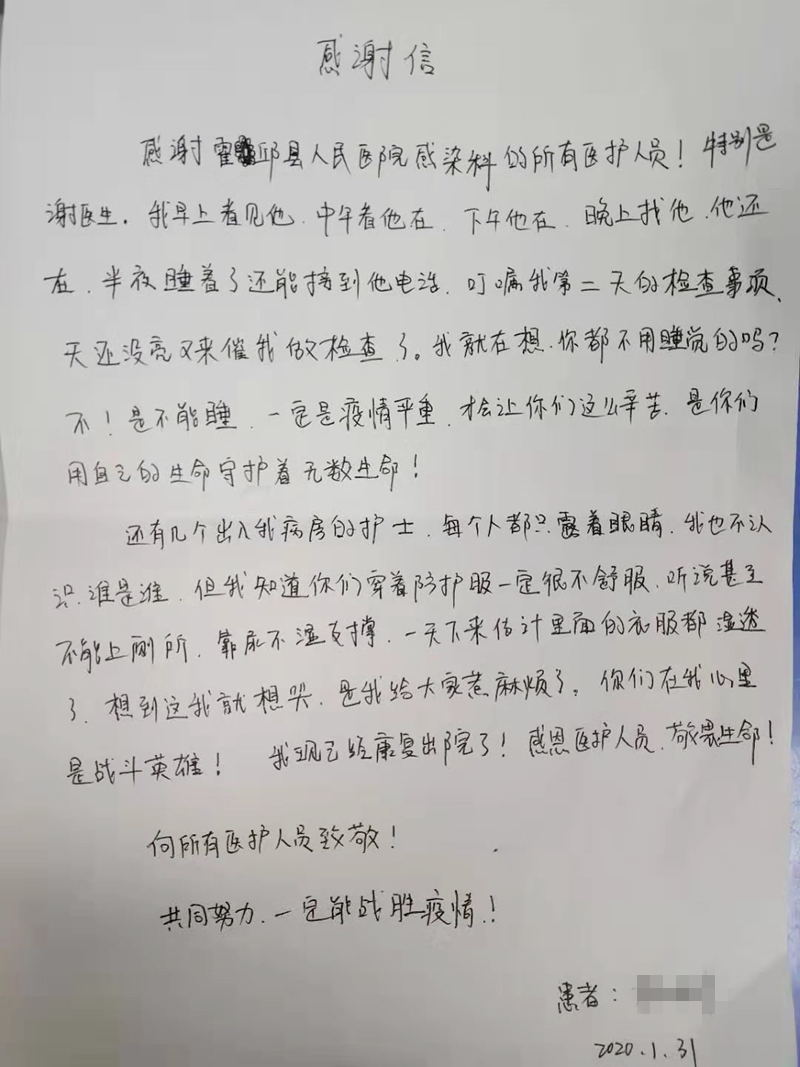 感谢信
感谢霍邱县人民医院感染科的所有医护人员！特别是
谢医生。我早上看见他，中午看他在，下午他在，晚上找他，他还
在，半夜睡着了还能接到他电话，叮嘱我第二天的检查事项，
天还没亮又来催我做检查了。我就在想，你都不用睡觉的吗？
不！是不能睡，一定是疫情严重，才会让你们这么辛苦，是你们
用自己的生命守护着无数生命！
还有几个出入我病房的护士，每个人都只露着眼睛，我也不认
识谁是谁，但我知道你们穿着防护服一定很不舒服，听说甚至
不能上厕所，靠尿不湿支撑，一天下来估计里面的衣服都湿透
了，想到这我就想哭，是我给大家惹麻烦了。你们在我心里
是战斗英雄！ 我现已经康复出院了！感恩医护人员，敬畏生命！
向所有医护人员致敬！
共同努力，一定能战胜疫情！
患者：
2020.1.31